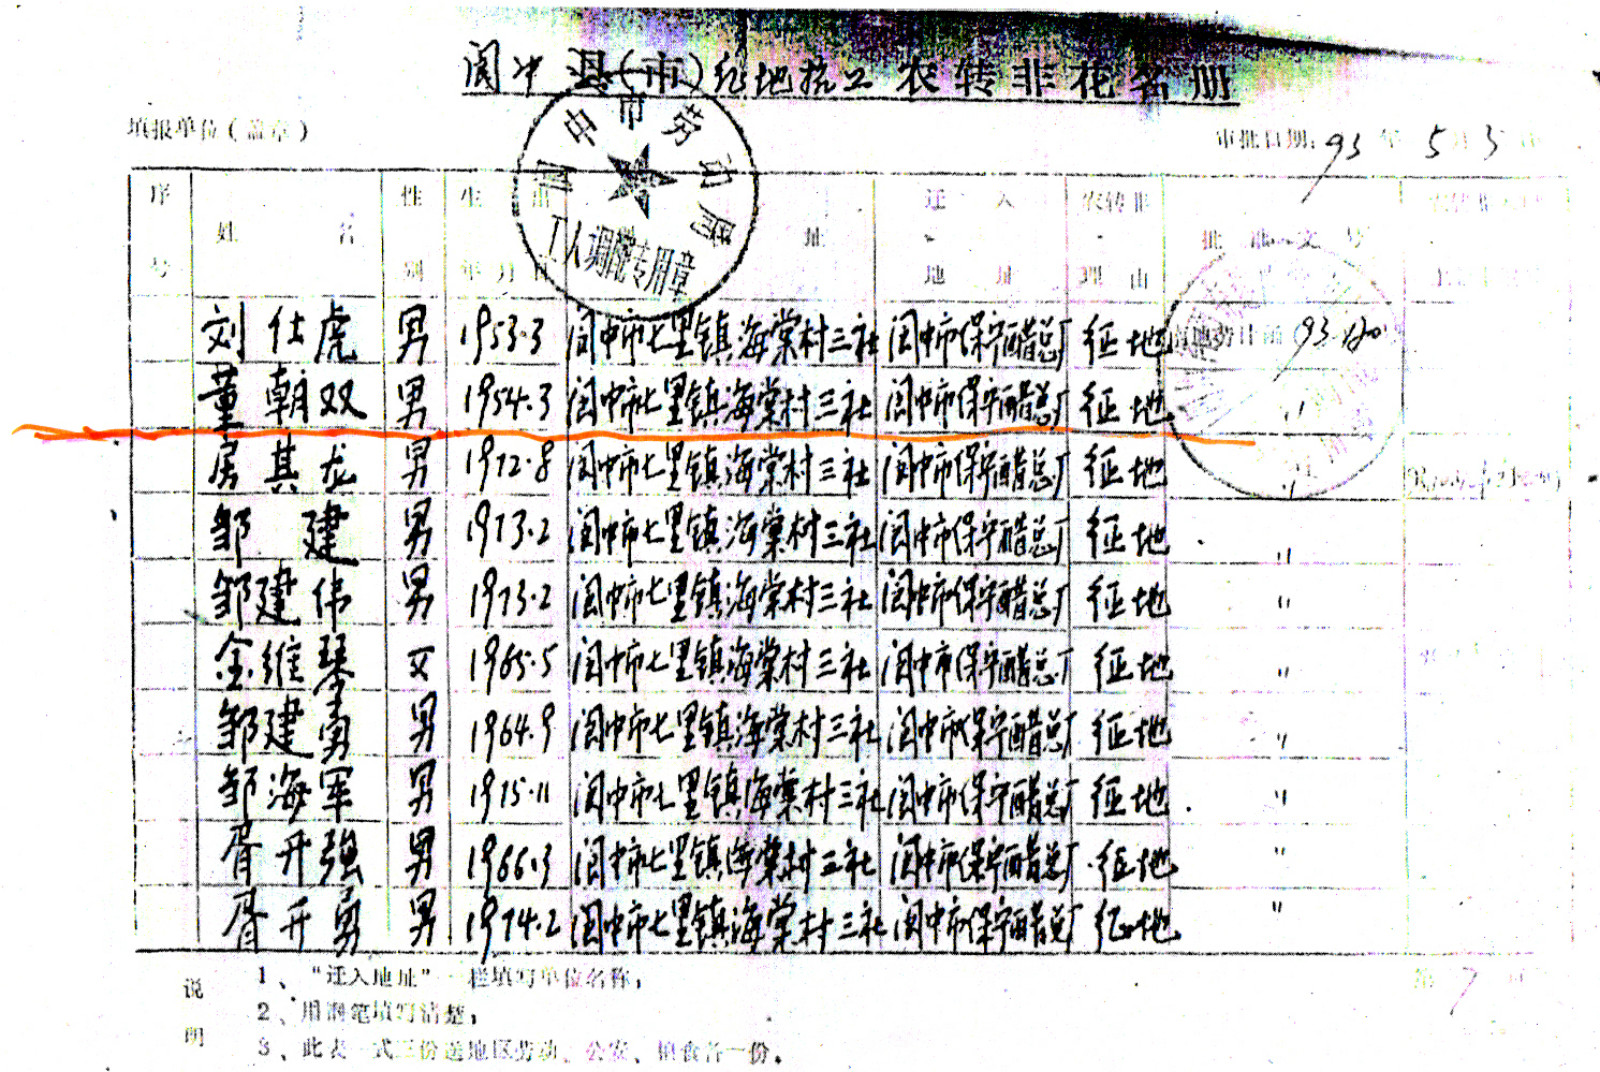 阆中县(市)征地招工农转非花名册
填报单位(盖章) 审批日期:93年5月3日
阆中市劳动局
工人调配专用章
序号 姓名 性别 生出年月日 址 迁入地址 农转非理由 批准文号
刘仕虎 男 1953.3 阆中市七里镇海棠村三社 阆中市保宁醋总厂 征地 南地劳计函(93.120
董朝双 男 1954.3 阆中市七里镇海棠村三社 阆中市保宁醋总厂 征地 〃
居其龙 男 1972.8 阆中市七里镇海棠村三社 阆中市保宁醋总厂 征地 〃
邹建 男 1973.2 阆中市七里镇海棠村三社 阆中市保宁醋总厂 征地 〃
邹建伟 男 1973.2 阆中市七里镇海棠村三社 阆中市保宁醋总厂 征地 〃
金维琴 女 1965.5 阆中市七里镇海棠村三社 阆中市保宁醋总厂 征地 〃
邹建勇 男 1964.9 阆中市七里镇海棠村三社 阆中市保宁醋总厂 征地 〃
邹海军 男 1975.11 阆中市七里镇海棠村三社 阆中市保宁醋总厂 征地 〃
胥开强 男 1966.3 阆中市七里镇海棠村三社 阆中市保宁醋总厂 征地 〃
胥开勇 男 1974.2 阆中市七里镇海棠村三社 阆中市保宁醋总厂 征地 〃
说明 1、“迁入地址”一栏填写单位名称;
2、用钢笔填写清楚;
3、此表一式三份送地区劳动、公安、粮食各一份。
第7页